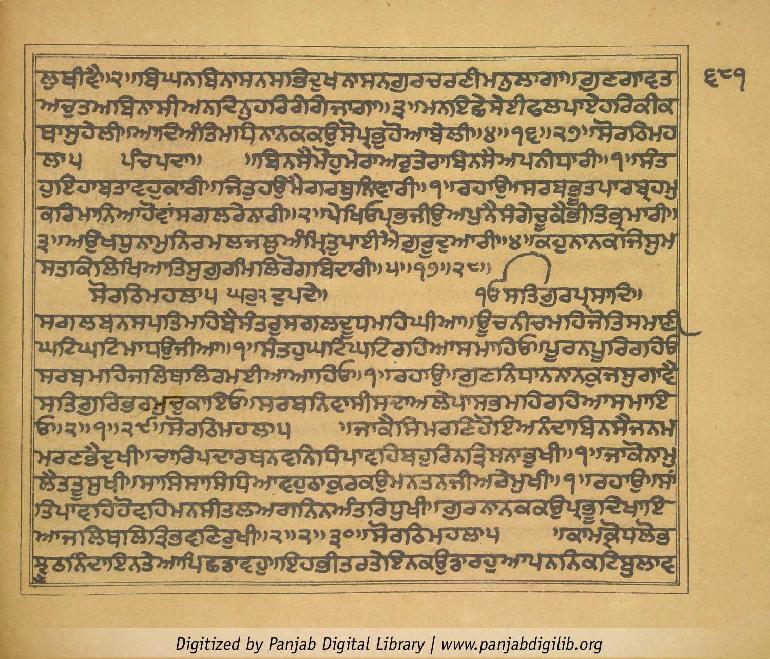 ਲੁਬੀਵੈ॥੨॥ਬਿਘਨਾਬਿਨਾਸਨਸਭਿਦੁਖਨਾਸਨਗੁਰਚਰਣੀਮਨੁਲਾਗਾ॥ਗੁਣਗਾਵਤ
ਅਚੁਤਅਬਿਨਾਸੀਅਨਦਿਨੁਹਰਿਰੰਗਿਜਾਗਾ॥੩॥ਮਨਇਛੇਸੇਈਫਲਪਾਏਹਰਿਕੀਕ
ਥਾਸੁਹੇਲੀ॥ਆਦਿਅੰਤਿਮਧਿਨਾਨਕਕਉਸੋਪ੍ਰਭੁਹੋਆਬੇਲੀ॥੪॥੧੬॥੨੭॥ਸੋਰਠਿਮਹ
ਲਾ੫ ਪੰਚਪਦਾ॥ ॥ਬਿਨਸੈਮੋਹੁਮੇਰਾਅਰੁਤੇਰਾਬਿਨਸੈਅਪਨੀਧਾਰੀ॥੧॥ਸੰਤ
ਹੁਇਹਾਬਤਾਵਹੁਕਾਰੀ॥ਜਿਤੁਹਉਮੈਗਰਬੁਨਿਵਾਰੀ॥੧॥ਰਹਾਉ॥ਸਰਬਭੂਤਪਾਰਬ੍ਰਹਮੁ
ਕਰਿਮਾਨਿਆਹੋਵਾਂਸਗਲਰੇਨਾਰੀ॥੨॥ਪੇਖਿਓਪ੍ਰਭਜੀਉਅਪੁਨੈਸੰਗੇਚੂਕੈਭੀਤਿਭ੍ਰਮਾਰੀ॥
੩॥ਅਉਖਧੁਨਾਮੁਨਿਰਮਲਜਲੁਅੰਮ੍ਰਿਤੁਪਾਈਐਗੁਰੂਦੁਆਰੀ॥੪॥ਕਹੁਨਾਨਕਜਿਸੁਮ
ਸਤਕਿਲਿਖਿਆਤਿਸੁਗੁਰਮਿਲਿਰੋਗਬਿਦਾਰੀ॥੫॥੧੭॥੨੮॥
ਸੋਰਠਿਮਹਲਾ੫ ਘਰੁ੨ਦੁਪਦੇ॥ ੴਸਤਿਗੁਰਪ੍ਰਸਾਦਿ॥
ਸਗਲਬਨਸਪਤਿਮਹਿਬੈਸੰਤਰੁਸਗਲਦੂਧਮਹਿਘੀਆ॥ਊਚਨੀਚਮਹਿਜੋਤਿਸਮਾਣੀ
ਘਟਿਘਟਿਮਾਧਉਜੀਆ॥੧॥ਸੰਤਹੁਘਟਿਘਟਿਰਹਿਆਸਮਾਹਿਓ॥ਪੂਰਨਪੂਰਿਰਹਿਓ
ਸਰਬਮਹਿਜਲਿਥਲਿਰਮਈਆਆਹਿਓ॥੧॥ਰਹਾਉ॥ਗੁਣਨਿਧਾਨਨਾਨਕੁਜਸੁਗਾਵੈ
ਸਤਿਗੁਰਿਭਰਮੁਚੁਕਾਇਓ॥ਸਰਬਨਿਵਾਸੀਸਦਾਅਲੇਪਾਸਭਮਹਿਰਹਿਆਸਮਾਇ
ਓ॥੨॥੧॥੨੯॥ਸੋਰਠਿਮਹਲਾ੫ ॥ਜਾਕੈਸਿਮਰਣਿਹੋਇਅਨੰਦਾਬਿਨਸੈਜਨਮ
ਮਰਣਭੈਦੁਖੀ॥ਚਾਰਿਪਦਾਰਥਨਵਨਿਧਿਪਾਵਹਿਬਹੁਰਿਨਤ੍ਰਿਸਨਾਭੁਖੀ॥੧॥ਜਾਕੋਨਾਮੁ
ਲੈਤਤੂਸੁਖੀ॥ਸਾਸਿਸਾਸਿਧਿਆਵਹੁਠਾਕੁਰਕਉਮਨਤਨਜੀਅਰੇਮੁਖੀ॥੧॥ਰਹਾਉ॥ਸਾਂ
ਤਿਪਾਵਹਿਹੋਵਹਿਮਨਸੀਤਲਅਗਨਿਨਅੰਤਰਿਧੁਖੀ॥ਗੁਰਨਾਨਕਕਉਪ੍ਰਭੂਦਿਖਾਇ
ਆਜਲਿਥਲਿਤ੍ਰਿਭਵਣਿਰੁਖੀ॥੨॥੨॥੩੦॥ਸੋਰਠਿਮਹਲਾ੫ ॥ਕਾਮਕ੍ਰੋਧਲੋਭ
ਝੂਠਨਿੰਦਾਇਨਤੇਆਪਿਛਡਾਵਹੁ॥ਇਹਭੀਤਰਤੇਇਨਕਉਡਾਰਹੁਆਪਨਨਿਕਟਿਬੁਲਾਵ
੬੮੧
Digitized by Panjab Digital Library | www.panjabdigilib.org